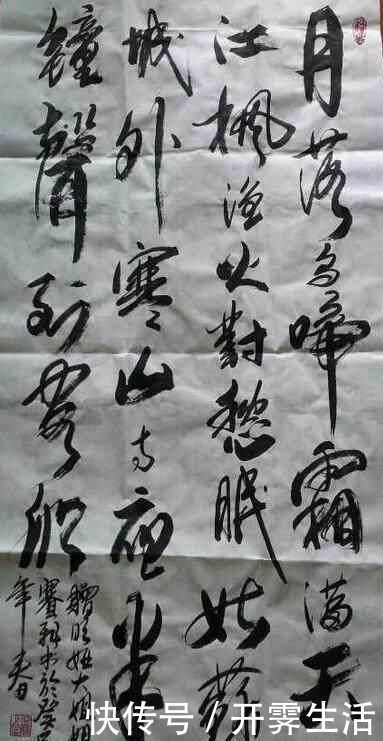 月落烏啼霜滿天
江楓漁火對愁眠姑蘇
城外寒山寺夜半
鐘聲到客船
年春日
快传号 / 开霁生活